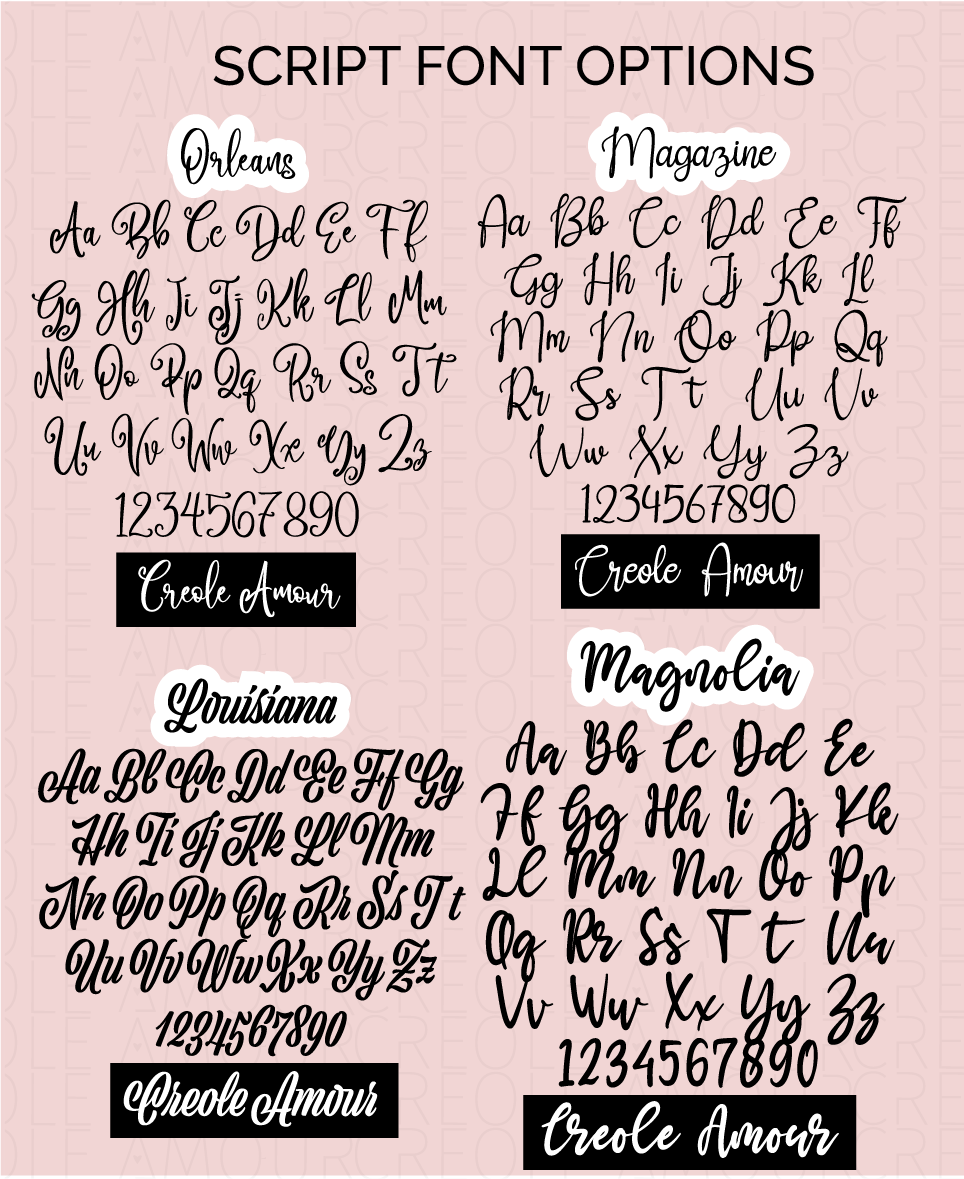 SCRIPT FONT OPTIONS
Orleans
Aa Bb Cc Dd Ee Ff
Gg Hh Ii Jj Kk Ll Mm
Nn Oo Pp Qq Rr Ss Tt
Uu Vv Ww Xx Yy Zz
1234567890
Creole Amour
Magazine
Aa Bb Cc Dd Ee Ff
Gg Hh Ii Jj Kk Ll
Mm Nn Oo Pp Qq
Rr Ss Tt Uu Vv
Ww Xx Yy Zz
1234567890
Creole Amour
Louisiana
Aa Bb Cc Dd Ee Ff Gg
Hh Ii Jj Kk Ll Mm
Nn Oo Pp Qq Rr Ss T t
Uu Vv Ww Xx Yy Zz
1234567890
Creole Amour
Magnolia
Aa Bb Cc Dd Ee
Ff Gg Hh Ii Jj Kk
Ll Mm Nn Oo Pp
Qq Rr Ss T t Uu
Vv Ww Xx Yy Zz
1234567890
Creole Amour